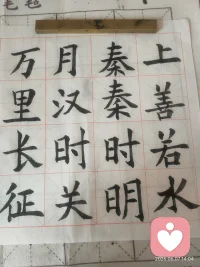 上善若水
秦秦时明
月汉时关
万里长征